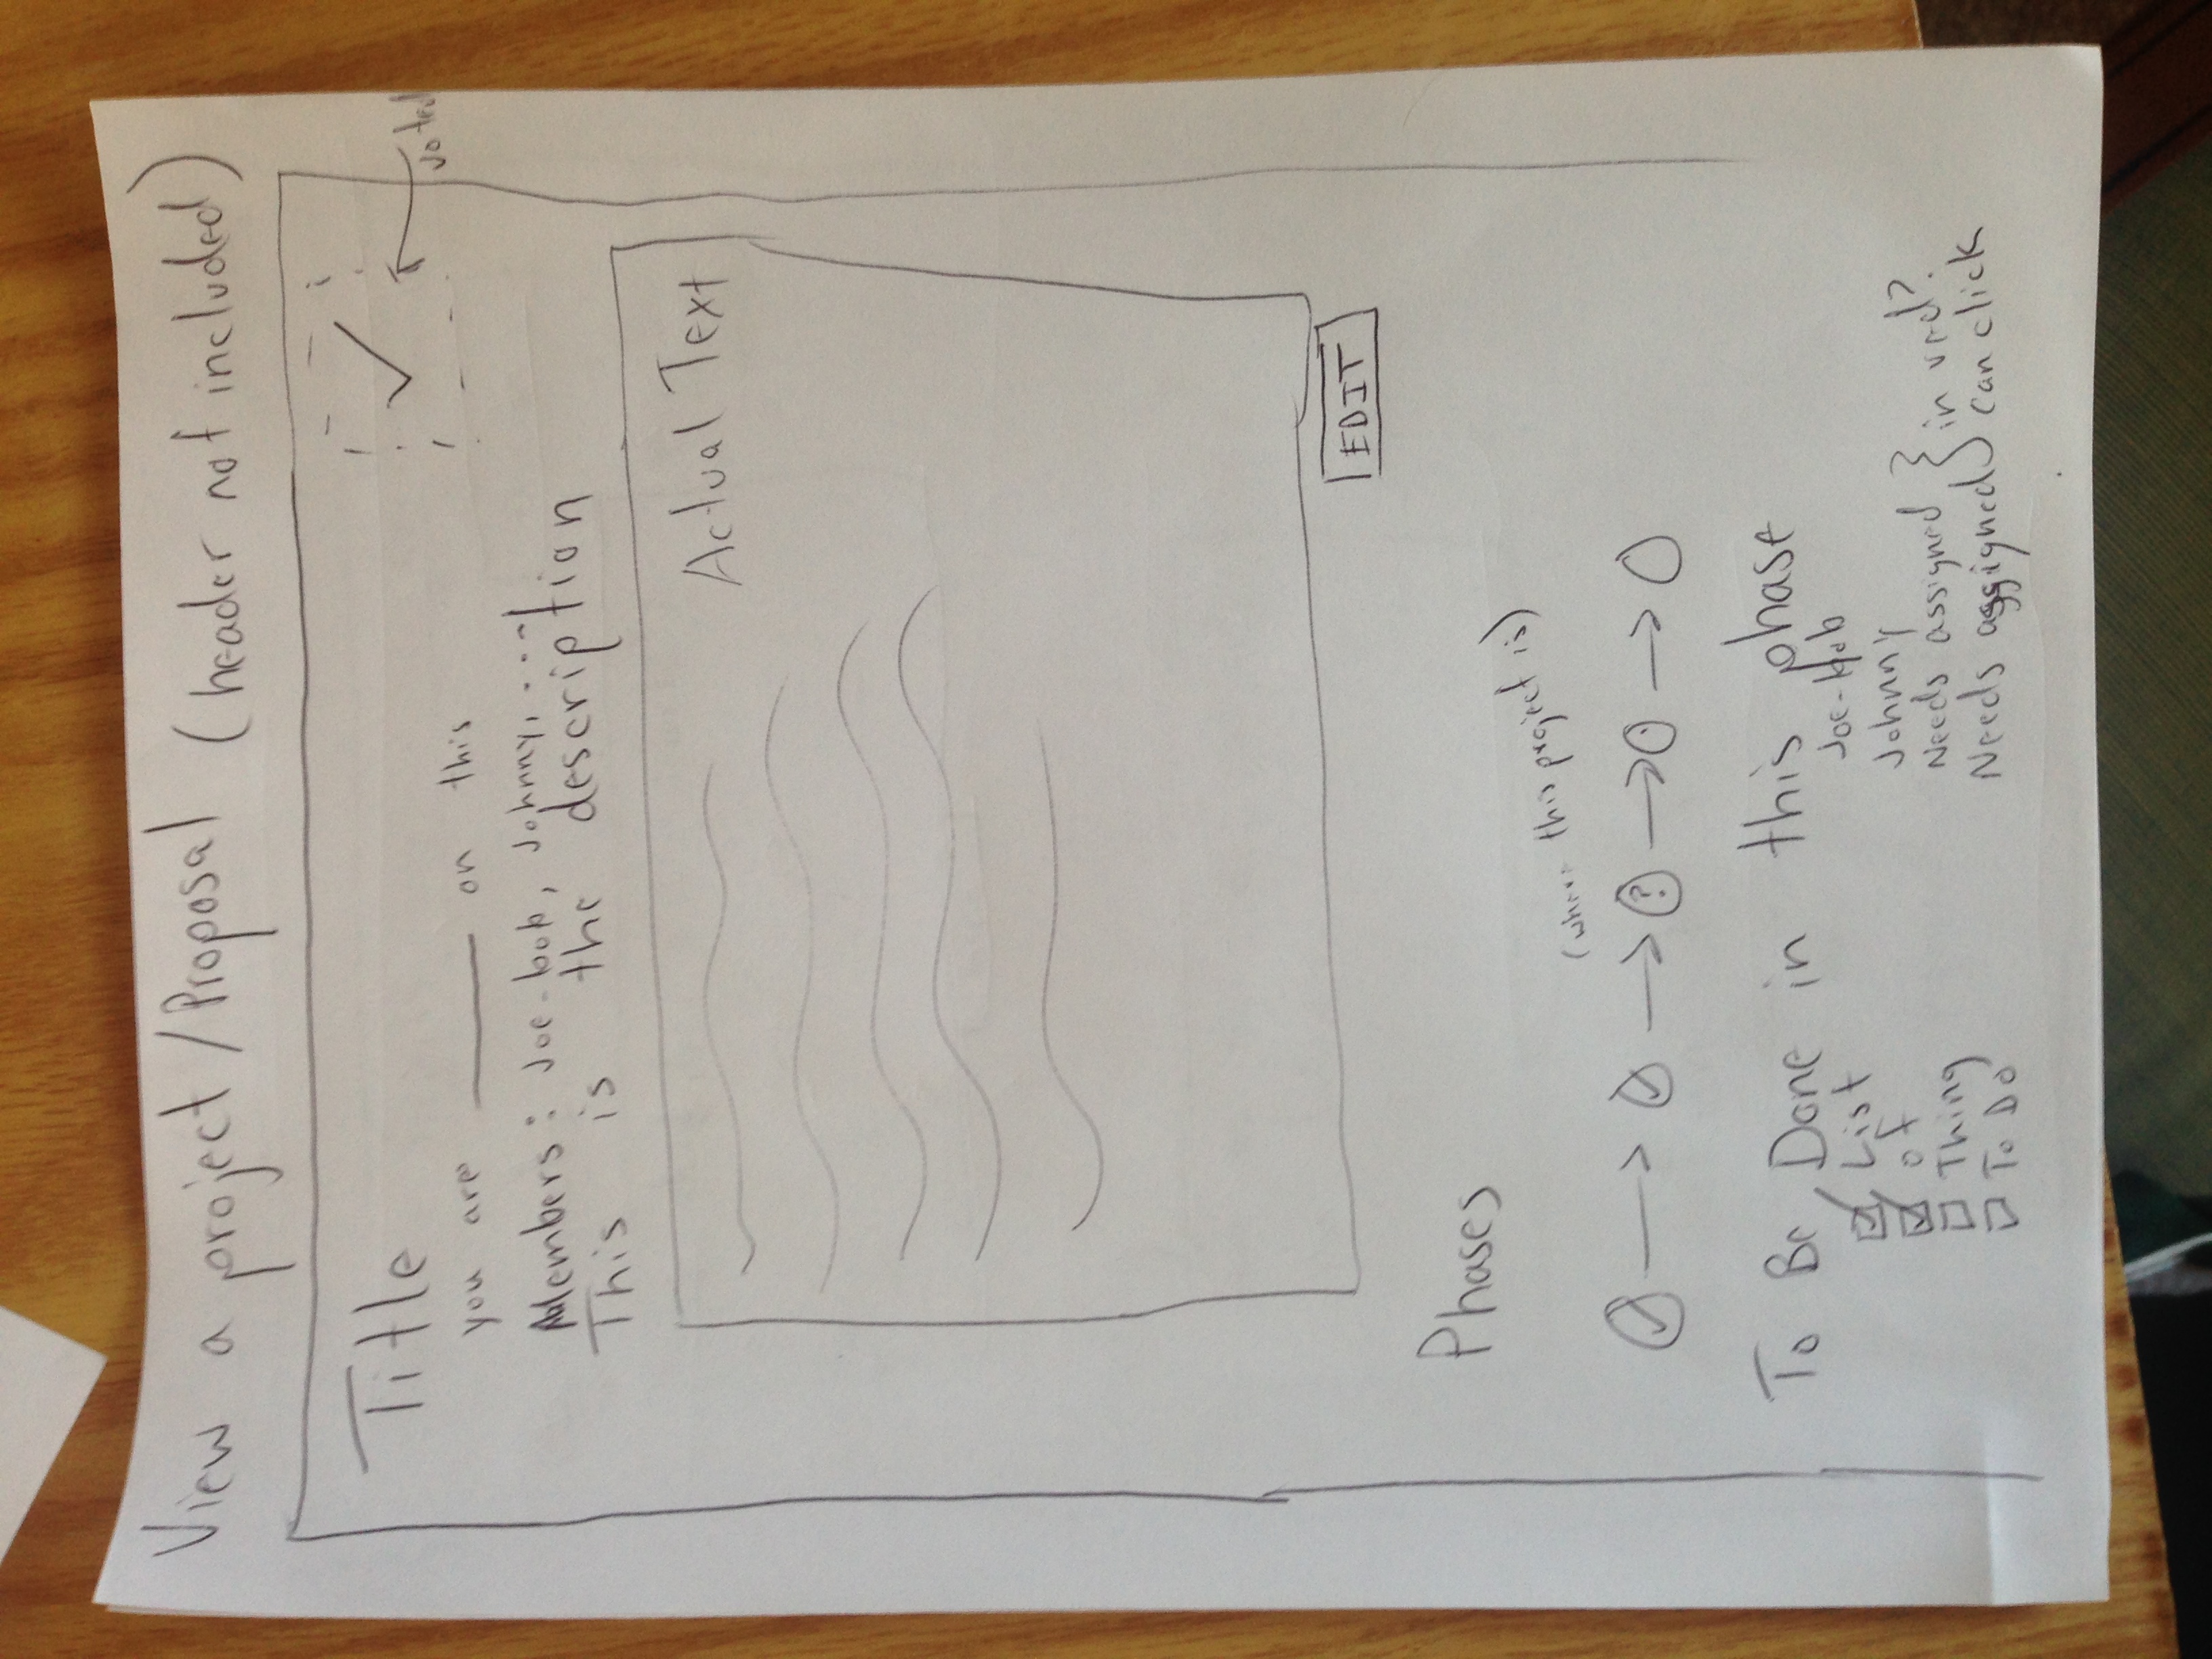 View a project / Proposal (header not included)
Title
voted
you are ______ on this
Members: Joe-bob, Johnny, ....
This is the description
Actual Text
EDIT
Phases
(where this project is)
?
To Be Done in this phase
List Joe-bob
of Johnny
Thing Needs assigned } in red?
To Do Needs assigned can click